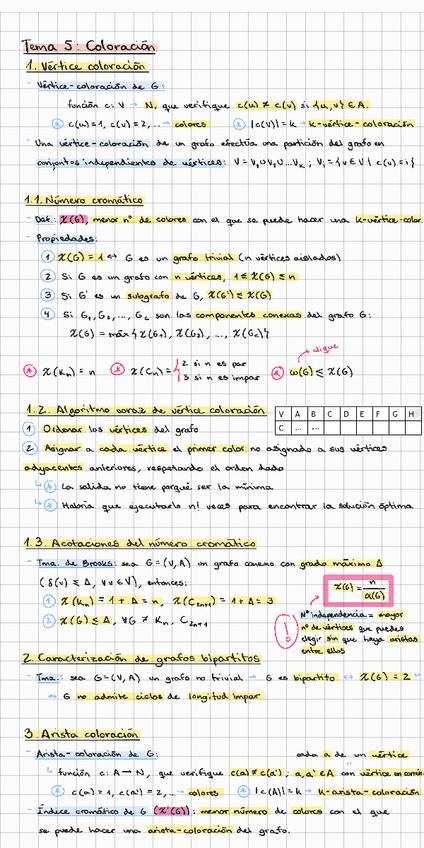 Tema 5: Coloración
1. Vértice coloración
- Vértice-coloración de G:
función c: V → N, que verifique c(u) ≠ c(v) si {u,v} ∈ A.
* c(u)=1, c(v)=2, ... → colores * |c(V)|=k → k-vértice-coloración
- Una vértice-coloración de un grafo efectúa una partición del grafo en
conjuntos independientes de vértices: V = V₁∪V₂∪...Vₖ ; Vᵢ = {v ∈ V | c(v)=i}
1.1. Número cromático
- Def: χ(G), menor nº de colores con el que se puede hacer una k-vértice-color.
- Propiedades:
1 χ(G) = 1 ↔ G es un grafo trivial (n vértices aislados)
2 Si G es un grafo con n vértices, 1 ≤ χ(G) ≤ n
3 Si G' es un subgrafo de G, χ(G') ≤ χ(G)
4 Si G₁, G₂, ..., G are las componentes conexas del grafo G:
χ(G) = máx { χ(G₁), χ(G₂), ..., χ(G)}
→ clique
* χ(Kₙ) = n * χ(Cₙ) = { 2 si n es par
3 si n es impar
* ω(G) ≤ χ(G)
1.2. Algoritmo voraz de vértice coloración
V A B C D E F G H
C ... ...
1 Ordenar los vértices del grafo
2 Asignar a cada vértice el primer color no asignado a sus vértices
adyacentes anteriores, respetando el orden dado
↳ * La salida no tiene porqué ser la mínima
↳ * Habría que ejecutarlo n! veces para encontrar la solución óptima
1.3. Acotaciones del número cromático
- Tma. de Brooks: sea G=(V,A) un grafo conexo con grado máximo Δ
(δ(v) ≤ Δ, ∀v ∈ V), entonces:
1 χ(Kₙ) = 1 + Δ = n, χ(C₂ₙ₊₁) = 1 + Δ = 3
2 χ(G) ≤ Δ, ∀G ≠ Kₙ, C₂ₙ₊₁
χ(G) = n / α(G)
! Nº independencia = mayor
nº de vértices que puedes
elegir sin que haya aristas
entre ellos
2. Caracterización de grafos bipartitos
- Tma.: sea G=(V,A) un grafo no trivial → G es bipartito ↔ χ(G) = 2
↔ G no admite ciclos de longitud impar
3. Arista coloración
- Arista-coloración de G: cada a de un vértice
↳ función c: A → N, que verifique c(a) ≠ c(a') ; a,a' ∈ A con vértice en común
* c(a)=1, c(a')=2, ... → colores * |c(A)|=k → k-arista-coloración
- Índice cromático de G (χ'(G)): menor número de colores con el que
se puede hacer una arista-coloración del grafo.